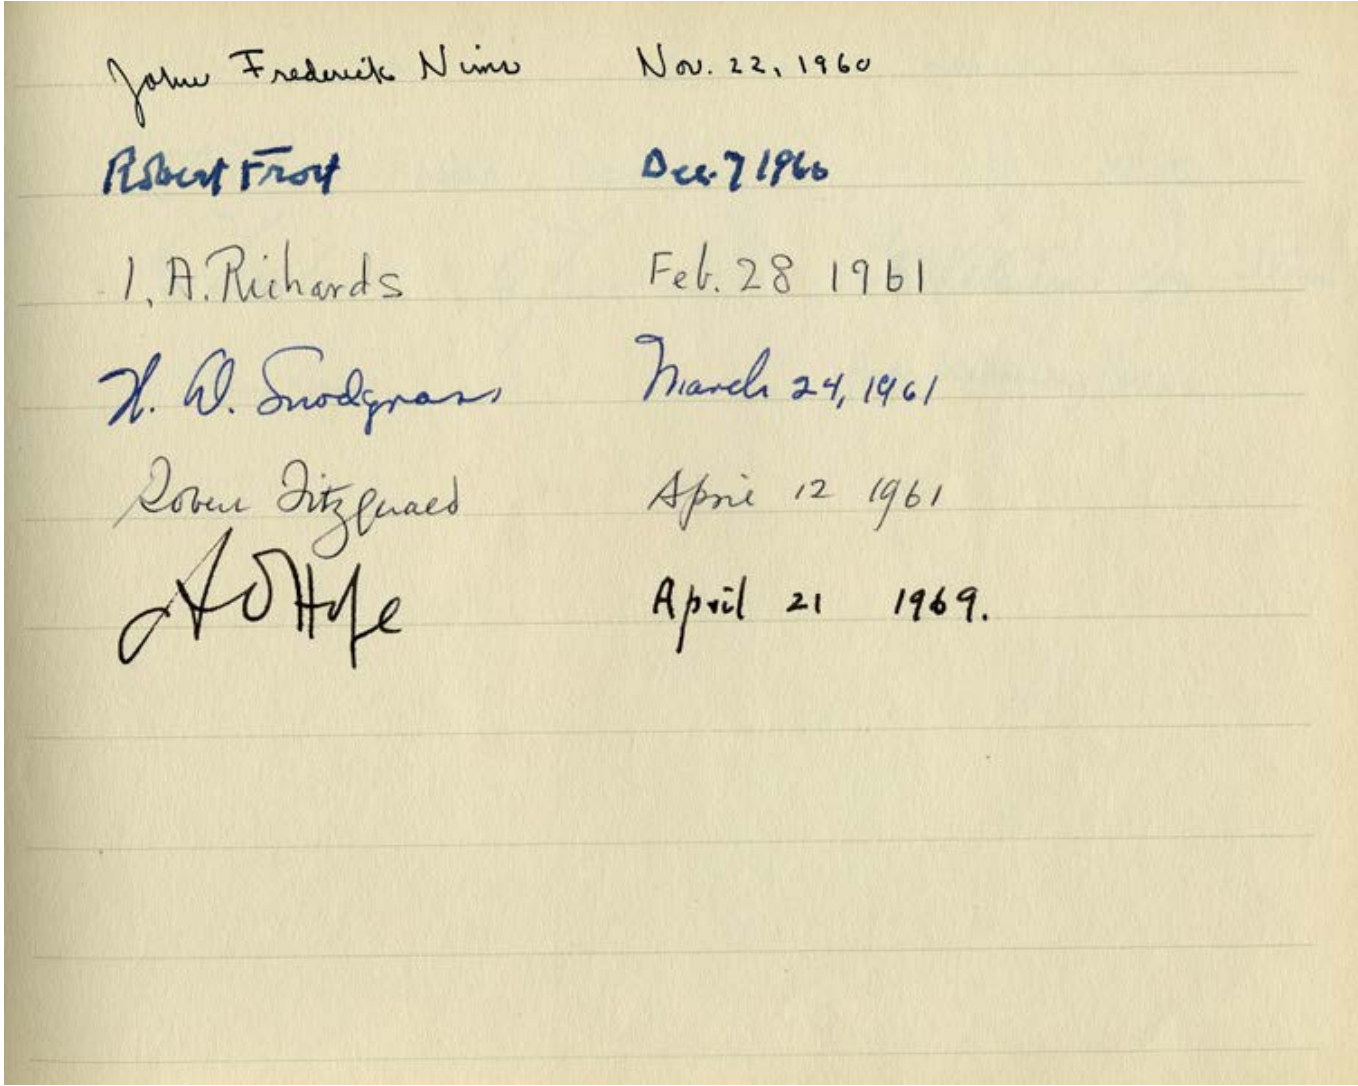 John Frederick Nims Nov. 22, 1960
Robert Frost Dec. 7 1960
I. A. Richards Feb. 28 1961
W. D. Snodgrass March 24, 1961
Robert Fitzgerald April 12 1961
A D Hope April 21 1969.